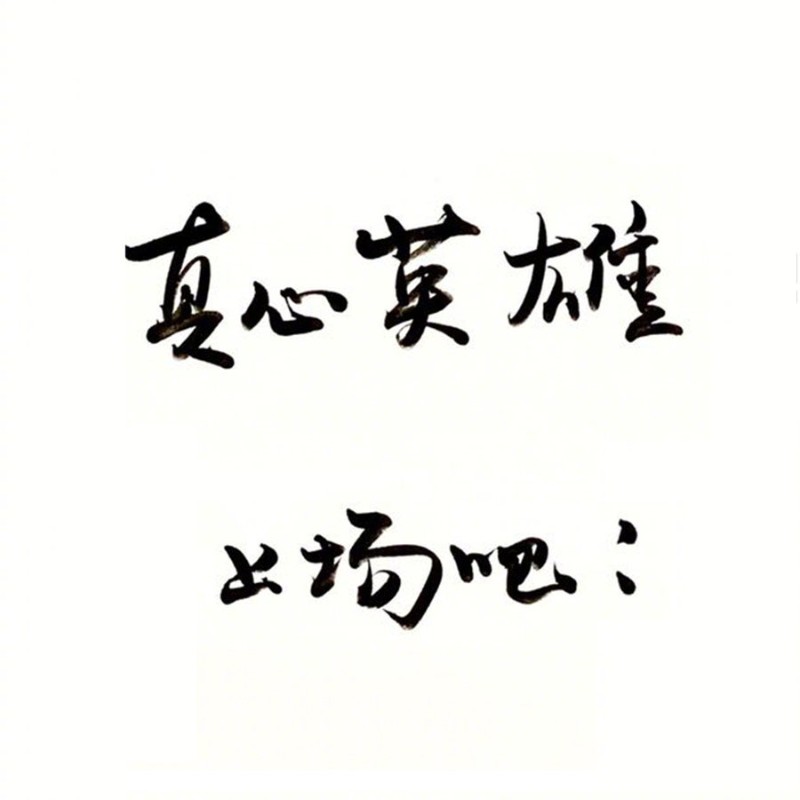 真心英雄
上场吧：